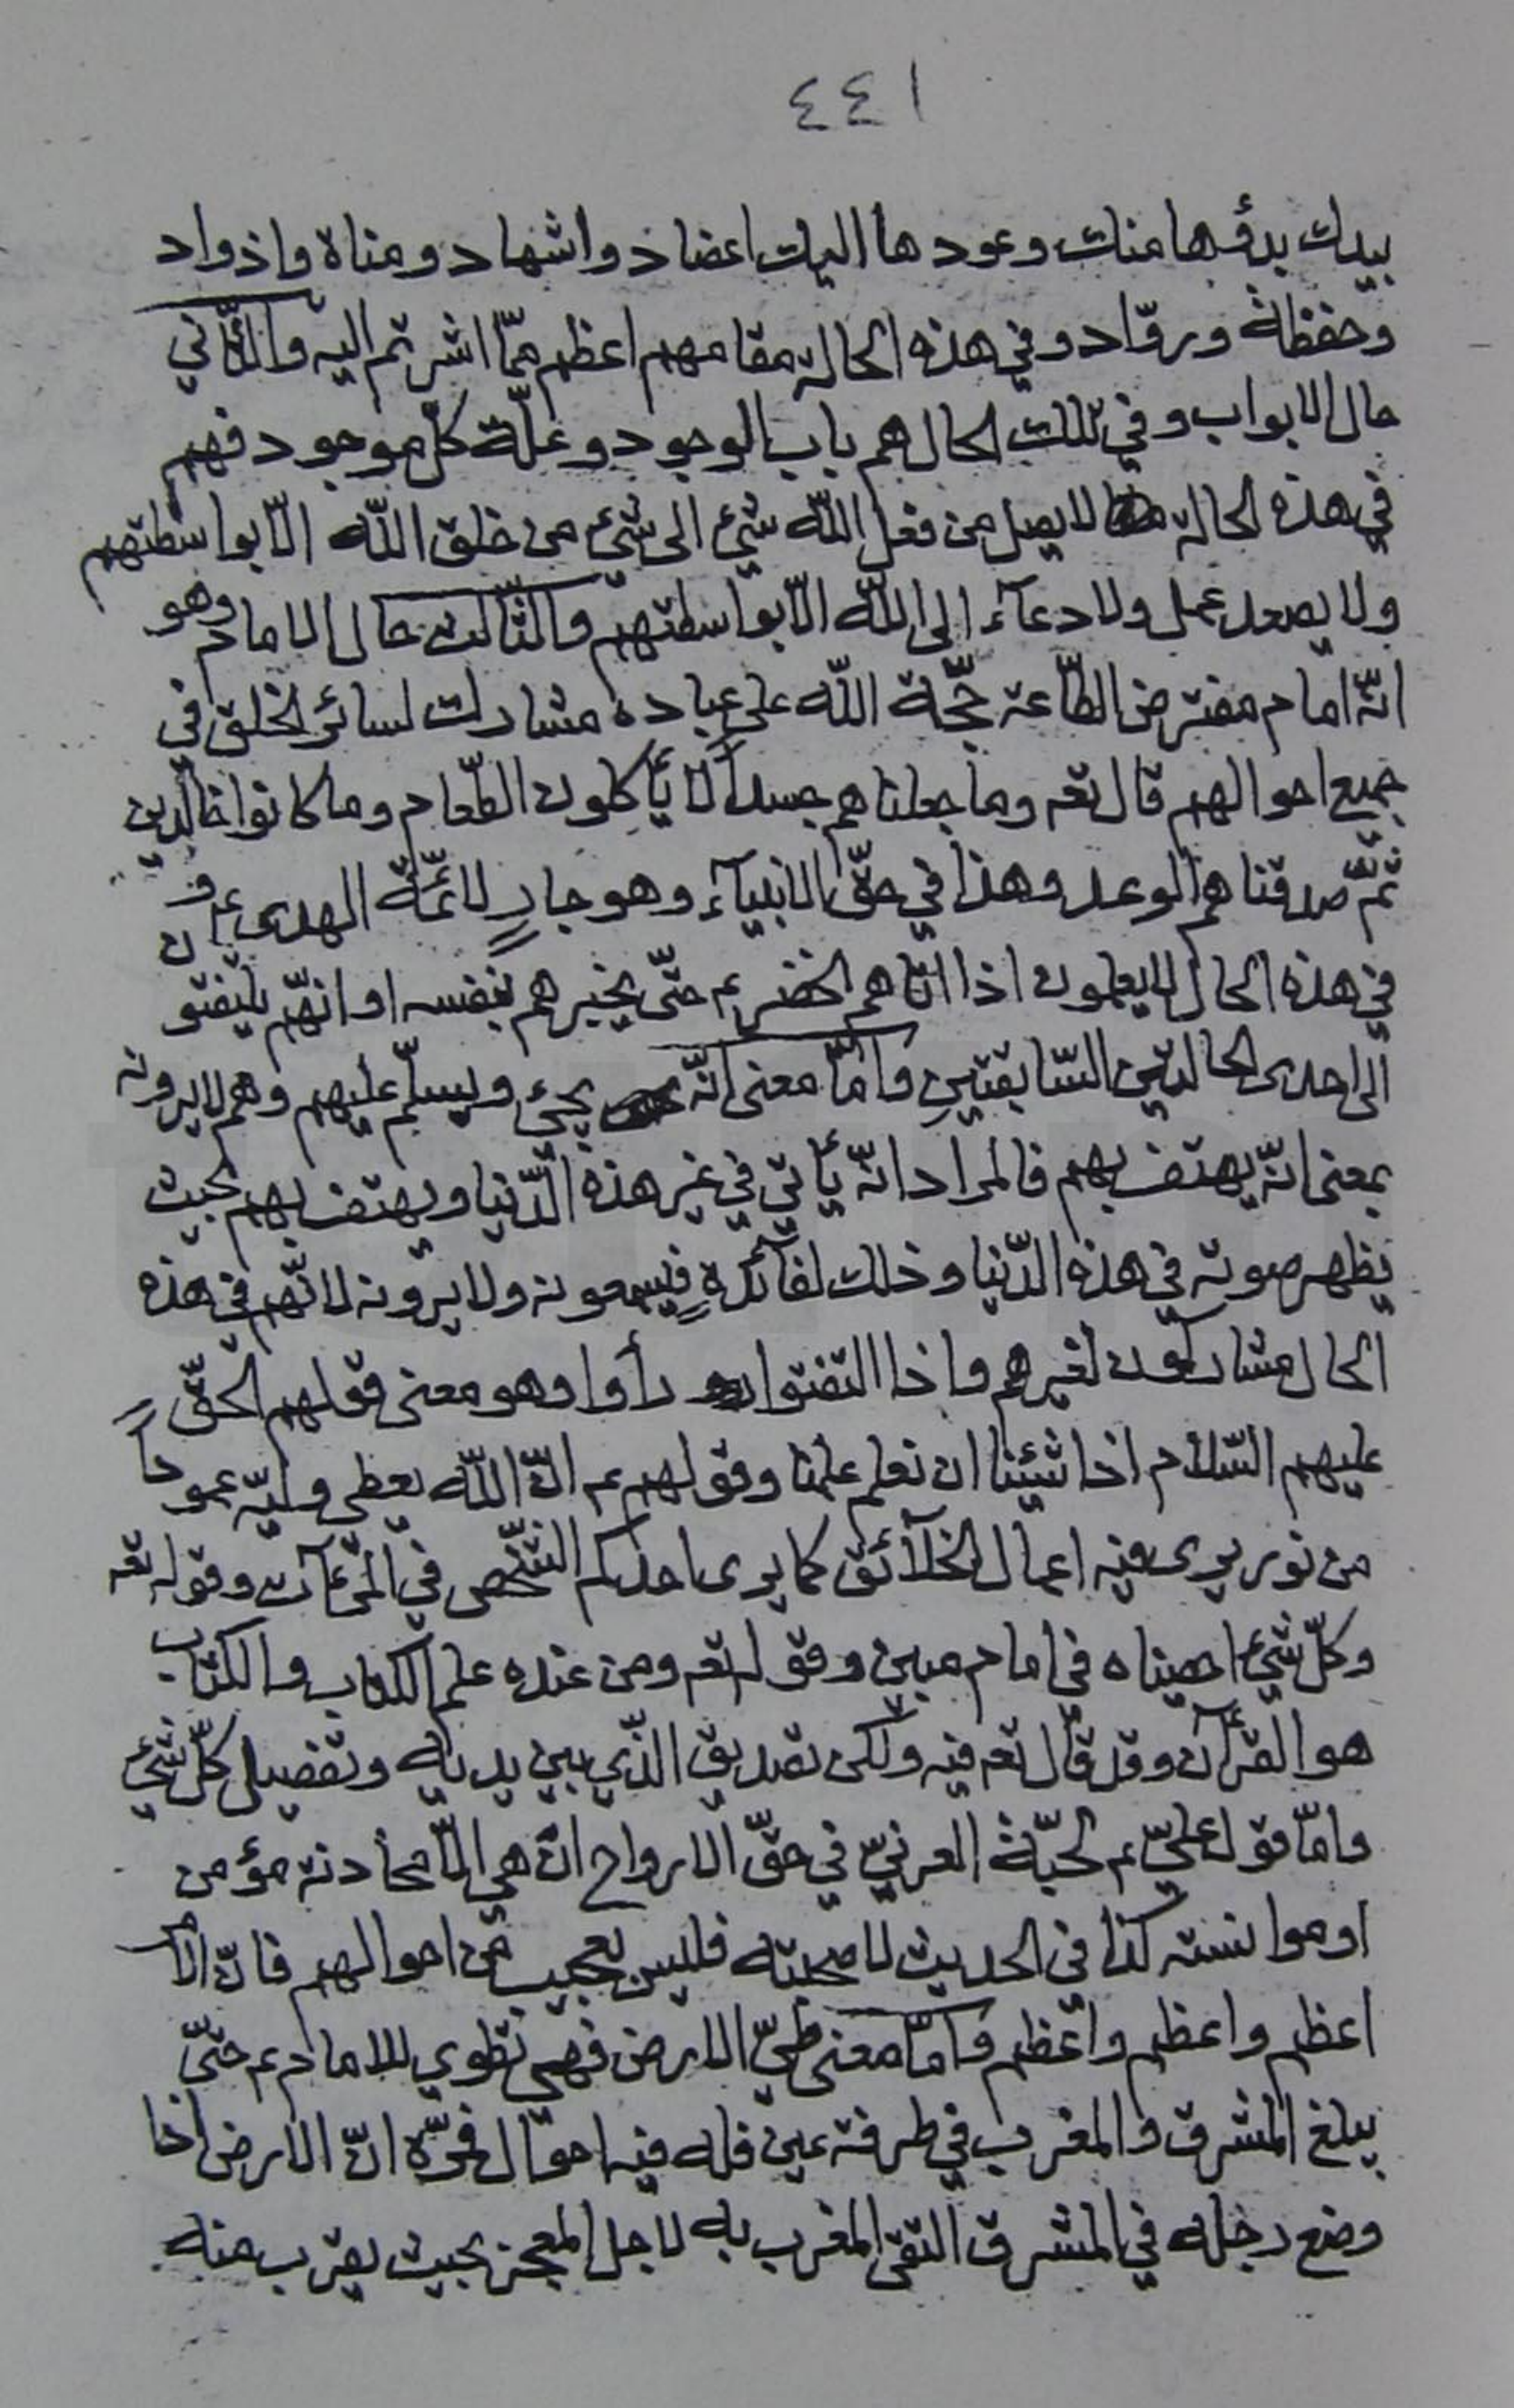 ٤٤١
بيدك بدؤها منك وعودها اليك اعضاد واشهاد ومناة واذواد
وحفظة وروّاد وفي هذه الحالة مقامهم اعظم ممّا اشرتم اليه والثّاني
حال الابواب وفي تلك الحال هم باب الوجود وعلّة كلّ موجود فهم
في هذه الحالة لا يصل من فعل اللّه شيء الى شيء من خلق اللّه الّا بواسطتهم
ولا يصعد عمل ولا دعآء الى اللّه الّا بواسطتهم والثّالث حال الامام وهو
انّه امام مفترض الطّاعة حجّة اللّه على عباده مشارك لسائر الخلق في
جميع احوالهم قال تعه وما جعلناهم جسداً لا يأكلون الطّعام وما كانوا خالدين
ثمّ صدقناهم الوعد وهذا في حقّ الانبيآء وهو جارٍ لائمّة الهدى ع و
في هذه الحال لا يعلمون اذا اتاهم الخضر ع حتّى يخبرهم بنفسه او انّهم يلتفتون
الى احدى الحالتين السّابقتين وامّا معنى انّه يجيء ويسلّم عليهم وهم لا يرونه
بمعنى انّه يهتف بهم فالمراد انّه يأتي في غير هذه الدّنيا ويهتف بهم بحيث
يظهر صوته في هذه الدّنيا وذلك لفآئدةٍ فيسمعونه ولا يرونه لانّهم في هذه
الحال مشاركون لغيرهم واذا التفتوا رأوا وهو معنى قولهم الحقّ
عليهم السّلام اذا شئنا ان نعلم علمنا وقولهم ع انّ اللّه يعطي وليّه عموداً
من نور يرى فيه اعمال الخلآئق كما يرى احدكم الشّخص في المرءآت وقوله تعه
وكلّ شيء احصيناه في امام مبين وقوله تعه ومن عنده علم الكتاب والكتاب
هو القرآن وقد قال تعه فيه ولكن تصديق الذّي بين يديه وتفصيل كلّ شيء
وامّا قول عليّ ع لحبّة العرنيّ في حقّ الارواح ان هي الّا محادثة مؤمن
او موانسته كذا في الحديث لصحبته فليس بعجيب من احوالهم فانّ الامر
اعظم واعظم واعظم وامّا معنى طيّ الارض فهي تطوي للامام ع حتّى
يبلغ المشرق والمغرب في طرفة عين فله فيه احوال فمرّة انّ الارض اذا
وضع رجله في المشرق التقى المغرب به لاجل المعجز بحيث يقرب منه